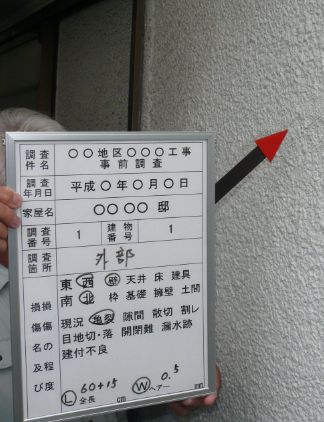 調査件名 〇〇地区〇〇〇工事
事前調査
調査年月日 平成〇年〇月〇日
家屋名 〇〇〇〇 邸
調査番号 1 建物番号 1
調査箇所 外部
損傷名及び 損傷の程度
東 西 壁 天井 床 建具
南 北 枠 基礎 擁壁 土間
現況 亀裂 隙間 散切 割レ
目地切・落 開閉難 漏水跡
建付不良
L 60+15 W 0.5
全長 cm ヘアー mm